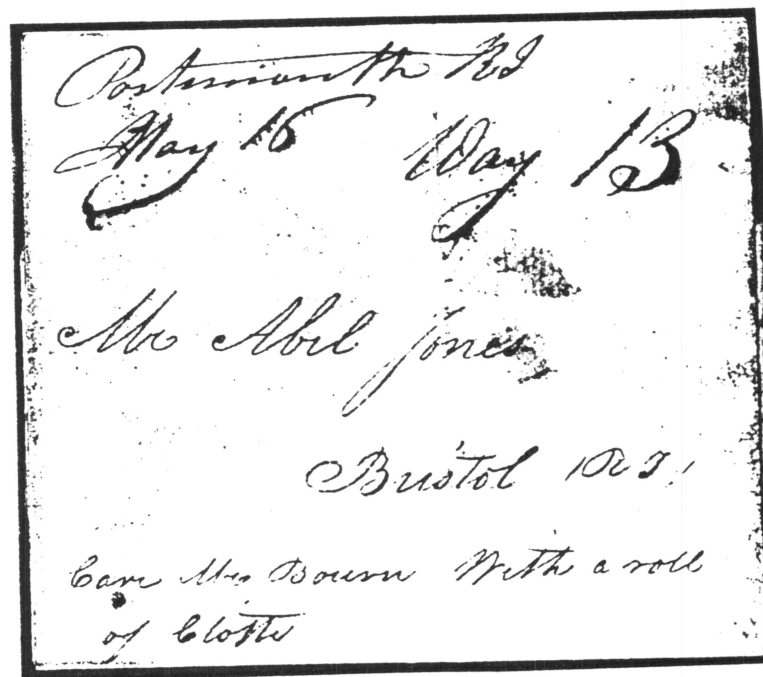 Portsmouth RI
May 16 Way 13
Mr Abel Jones
Bristol R I,
Care Mr Bourn With a roll
of Cloth